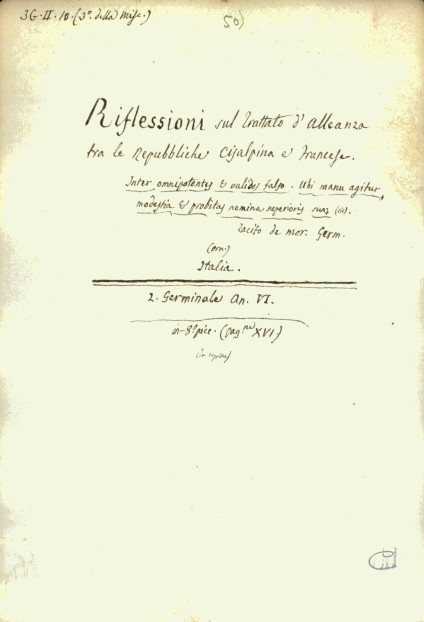 3G·II·10·(3º della Misc.)
50)
Riflessioni sul Trattato d'Alleanza
tra le Repubbliche Cisalpina e Francese.
Inter omnipotentes & validos falso. Ubi manu agitur,
modestia & probitas nomina superioris sunt (sic).
Tacito de mor. Germ.
(orn.)
Italia.
2. Germinale An. VI.
in-8º picc. (pag.ne XVI)